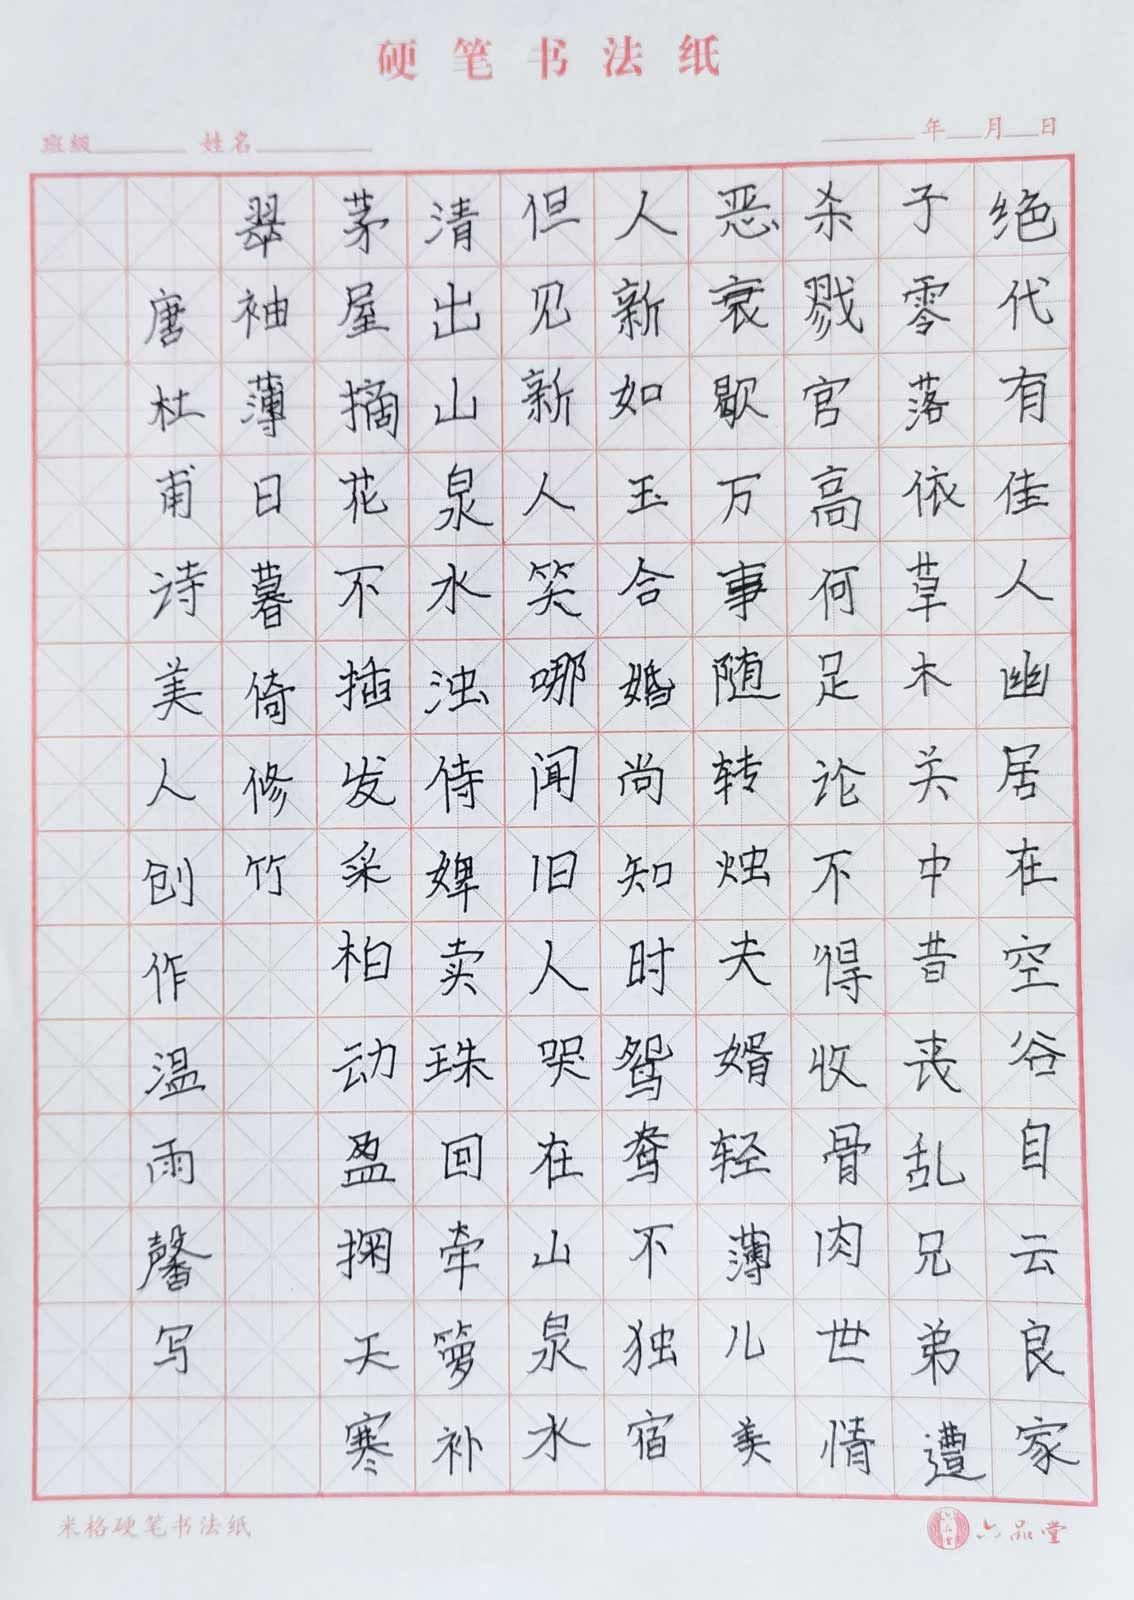 硬笔书法纸
班级 姓名 年 月 日
绝代有佳人幽居在空谷自云良家
子零落依草木关中昔丧乱兄弟遭
杀戮官高何足论不得收骨肉世情
恶衰歇万事随转烛夫婿轻薄儿美
人新如玉合婚尚知时鸳鸯不独宿
但见新人笑哪闻旧人哭在山泉水
清出山泉水浊侍婢卖珠回牵箩补
茅屋摘花不插发采柏动盈掬天寒
翠袖薄日暮倚修竹
唐杜甫诗美人创作温雨馨写
米格硬笔书法纸
六品堂